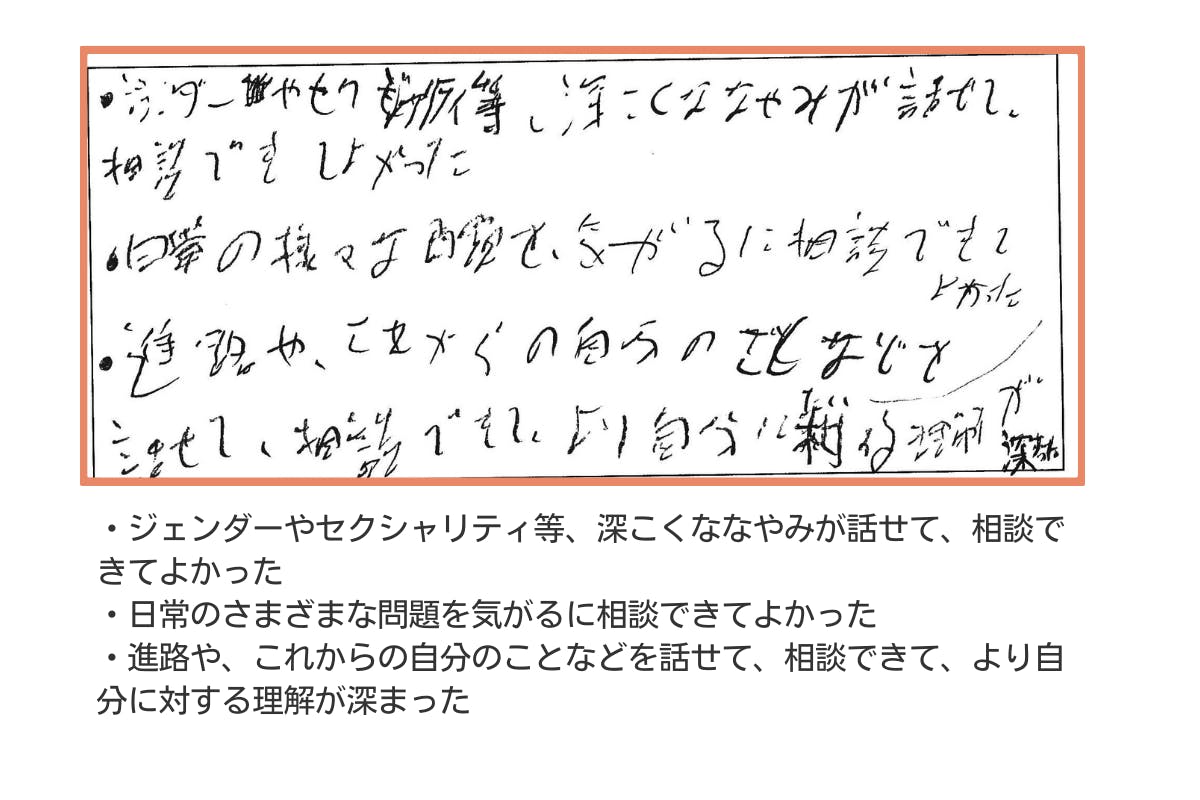 ・ジェンダーやセクシャリティ等、深こくななやみが話せて、
相談できてよかった
・日常の様々な問題を、気がるに相談できて
よかった
・進路や、これからの自分のことなどを
話せて、相談できて、より自分に対する理解が深まった
・ジェンダーやセクシャリティ等、深こくななやみが話せて、相談で
きてよかった
・日常のさまざまな問題を気がるに相談できてよかった
・進路や、これからの自分のことなどを話せて、相談できて、より自
分に対する理解が深まった